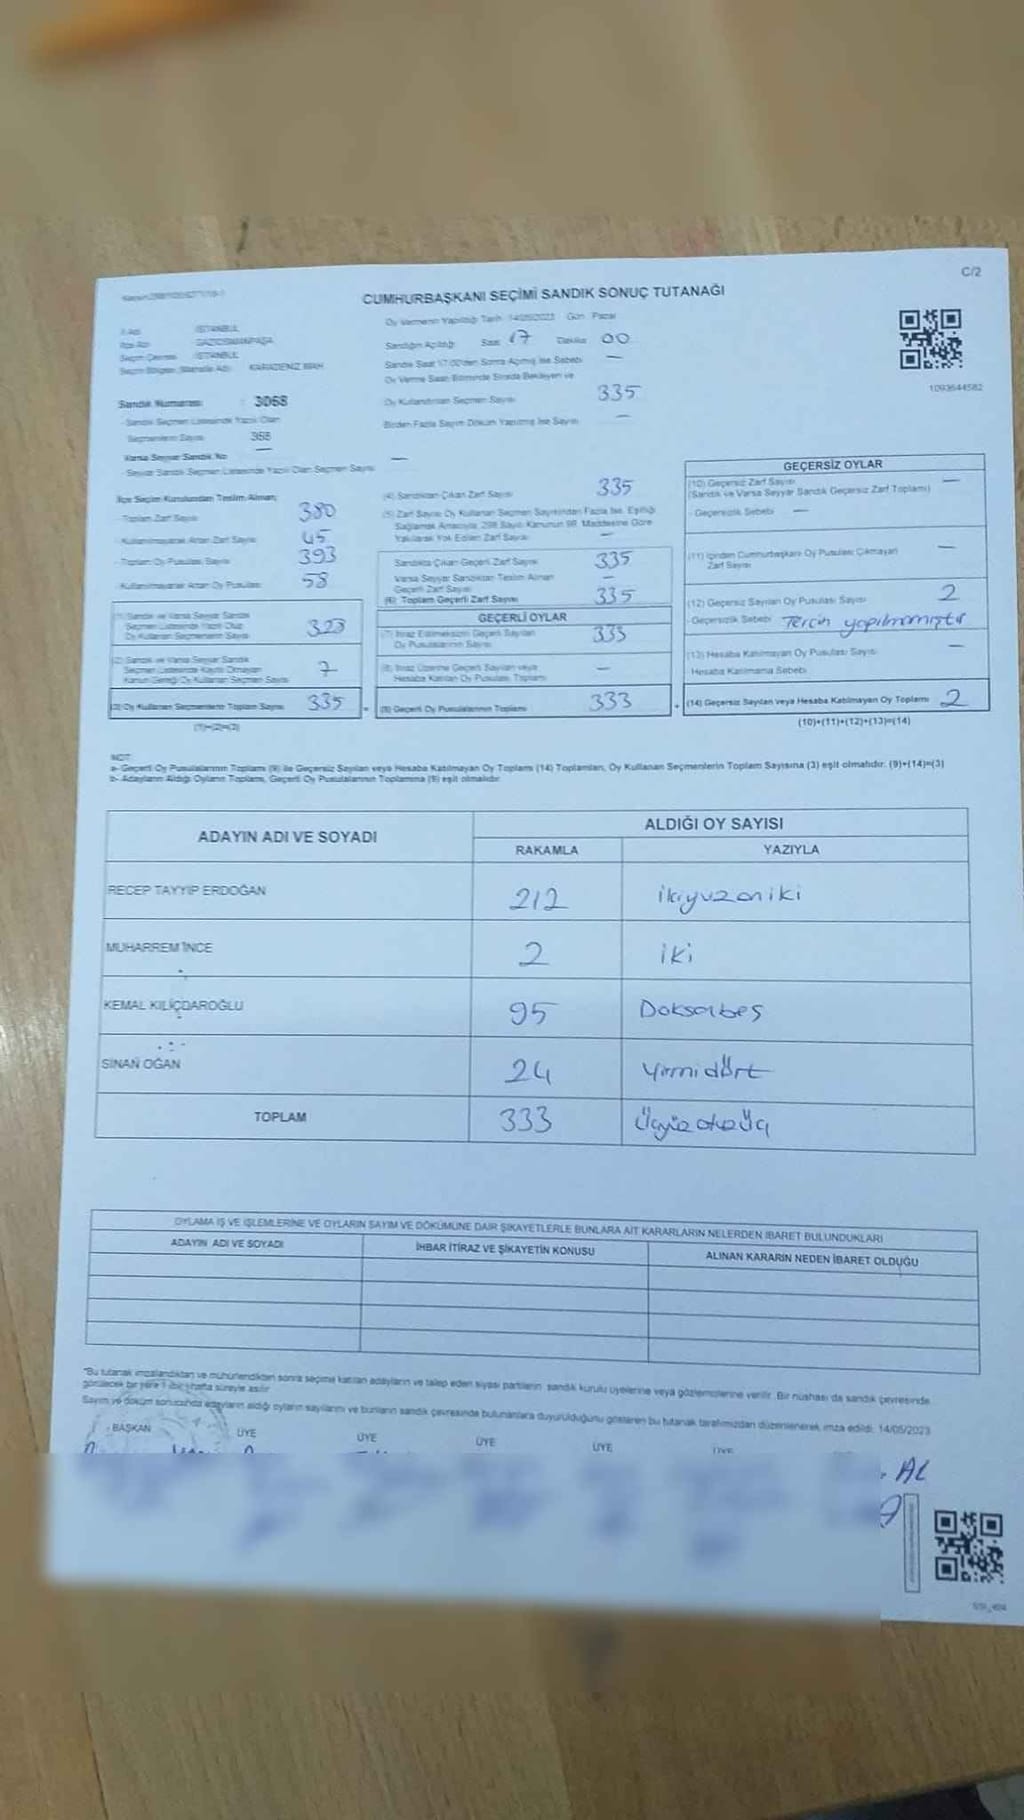 C/2
CUMHURBAŞKANI SEÇİMİ SANDIK SONUÇ TUTANAĞI
İl Adı İSTANBUL
İlçe Adı GAZİOSMANPAŞA
Seçim Çevresi İSTANBUL
Seçim Bölgesi (Mahalle Adı) KARADENİZ MAH.
Sandık Numarası : 3068
Sandık Seçmen Listesinde Yazılı Olan
Seçmenlerin Sayısı 368
Varsa Seyyar Sandık No —
Seyyar Sandık Seçmen Listesinde Yazılı Olan Seçmen Sayısı —
Oy Vermenin Yapıldığı Tarih 14/05/2023 Gün Pazar
Sandığın Açıldığı Saat 17 Dakika 00
Sandık Saat 17.00'den Sonra Açılmış İse Sebebi —
Oy Verme Saati Bitiminde Sırada Bekleyen ve
Oy Kullandırılan Seçmen Sayısı 335
Birden Fazla Sayım Döküm Yapılmış İse Sayısı —
1093644582
İlçe Seçim Kurulundan Teslim Alınan;
Toplam Zarf Sayısı 380
Kullanılmayarak Artan Zarf Sayısı 45
Toplam Oy Pusulası Sayısı 393
Kullanılmayarak Artan Oy Pusulası 58
(1) Sandık ve Varsa Seyyar Sandık
Seçmen Listesinde Yazılı Olup
Oy Kullanan Seçmenlerin Sayısı 323
(2) Sandık ve Varsa Seyyar Sandık
Seçmen Listesinde Kayıtlı Olmayan
Kanun Gereği Oy Kullanan Seçmen Sayısı 7
(3) Oy Kullanan Seçmenlerin Toplam Sayısı 335
(1)+(2)=(3)
(4) Sandıktan Çıkan Zarf Sayısı 335
(5) Zarf Sayısı Oy Kullanan Seçmen Sayısından Fazla İse, Eşitliği
Sağlamak Amacıyla, 298 Sayılı Kanunun 98. Maddesine Göre
Yakılarak Yok Edilen Zarf Sayısı —
Sandıkta Çıkan Geçerli Zarf Sayısı 335
Varsa Seyyar Sandıktan Teslim Alınan
Geçerli Zarf Sayısı —
(6) Toplam Geçerli Zarf Sayısı 335
GEÇERLİ OYLAR
(7) İtiraz Edilmeksizin Geçerli Sayılan
Oy Pusulasının Sayısı 333
(8) İtiraz Üzerine Geçerli Sayılan veya
Hesaba Katılan Oy Pusulası Toplamı —
(9) Geçerli Oy Pusulalarının Toplamı 333
GEÇERSİZ OYLAR
(10) Geçersiz Zarf Sayısı —
(Sandık ve Varsa Seyyar Sandık Geçersiz Zarf Toplamı)
- Geçersizlik Sebebi —
(11) İçinden Cumhurbaşkanı Oy Pusulası Çıkmayan —
Zarf Sayısı
(12) Geçersiz Sayılan Oy Pusulası Sayısı 2
- Geçersizlik Sebebi Tercih yapılmamıştır
(13) Hesaba Katılmayan Oy Pusulası Sayısı —
Hesaba Katılmama Sebebi
(14) Geçersiz Sayılan veya Hesaba Katılmayan Oy Toplamı 2
(10)+(11)+(12)+(13)=(14)
NOT:
a- Geçerli Oy Pusulalarının Toplamı (9) ile Geçersiz Sayılan veya Hesaba Katılmayan Oy Toplamı (14) Toplamları, Oy Kullanan Seçmenlerin Toplam Sayısına (3) eşit olmalıdır. (9)+(14)=(3)
b- Adayların Aldığı Oyların Toplamı, Geçerli Oy Pusulalarının Toplamına (9) eşit olmalıdır.
ADAYIN ADI VE SOYADI
ALDIĞI OY SAYISI
RAKAMLA YAZIYLA
RECEP TAYYİP ERDOĞAN 212 ikiyüzoniki
MUHARREM İNCE 2 iki
KEMAL KILIÇDAROĞLU 95 Doksanbeş
SİNAN OĞAN 24 Yirmidört
TOPLAM 333 Üçyüzotuzüç
OYLAMA İŞ VE İŞLEMLERİNE VE OYLARIN SAYIM VE DÖKÜMÜNE DAİR ŞİKAYETLERLE BUNLARA AİT KARARLARIN NELERDEN İBARET BULUNDUKLARI
ADAYIN ADI VE SOYADI İHBAR İTİRAZ VE ŞİKAYETİN KONUSU ALINAN KARARIN NEDEN İBARET OLDUĞU
*Bu tutanak imzalandıktan ve mühürlendikten sonra seçime katılan adayların ve talep eden siyasi partilerin sandık kurulu üyelerine veya gözlemcilerine verilir. Bir nüshası da sandık çevresinde
görülecek bir yere 1 (bir) hafta süreyle asılır.
Sayım ve döküm sonucunda adayların aldığı oyların sayılarını ve bunların sandık çevresinde bulunanlara duyurulduğunu gösteren bu tutanak tarafımızdan düzenlenerek imza edildi. 14/05/2023
BAŞKAN ÜYE ÜYE ÜYE ÜYE ÜYE
AL